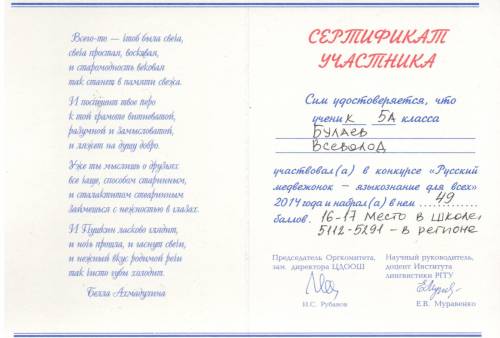 Всего-то — чтоб была свеча,
свеча простая, восковая,
и старомодность вековая
так станет в памяти свежа.
И поспешит твое перо
к той грамоте витиеватой,
разумной и замысловатой,
и ляжет на душу добро.
Уже ты мыслишь о друзьях
все чаще, способом старинным,
и сталактитом стеаринным
займешься с нежностью в глазах.
И Пушкин ласково глядит,
и ночь прошла, и гаснут свечи,
и нежный вкус родимой речи
так чисто губы холодит.
Белла Ахмадулина
СЕРТИФИКАТ
УЧАСТНИКА
Сим удостоверяется, что
ученик 5А класса
Булаев
Всеволод
участвовал(а) в конкурсе «Русский
медвежонок – языкознание для всех»
2014 года и набрал(а) в нем 49
баллов. 16-17 место в школе
5112-5291 - в регионе
Председатель Оргкомитета,
зам. директора ЦДООШ
И.С. Рубанов
Научный руководитель,
доцент Института
лингвистики РГГУ
Е.В. Муравенко